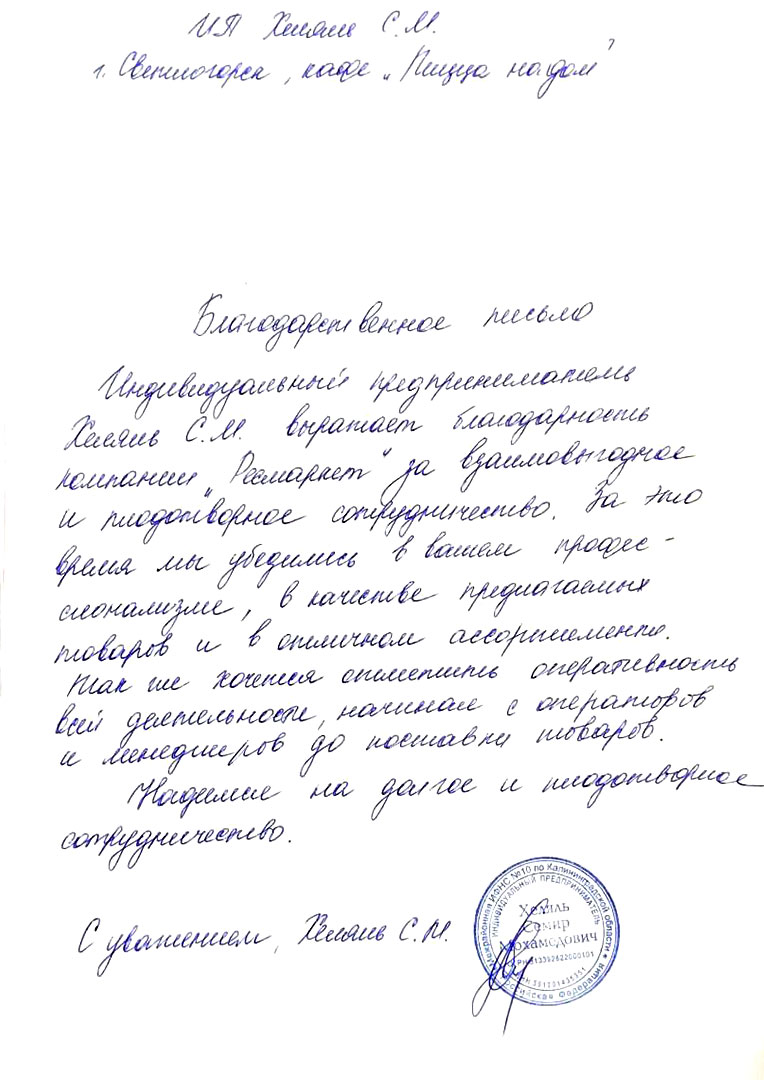 ИП Хеляль С.М.
г. Светлогорск, кафе „Пицца на дом"
Благодарственное письмо
Индивидуальный предприниматель
Хеляль С.М. выражает благодарность
компании „Ресмаркет" за взаимовыгодное
и плодотворное сотрудничество. За это
время мы убедились в вашем профес-
сионализме, в качестве предлагаемых
товаров и в отличном ассортименте.
Так же хочется отметить оперативность
всей деятельности, начиная с операторов
и менеджеров до поставки товаров.
Надеемся на долгое и плодотворное
сотрудничество.
С уважением, Хеляль С.М.
Межрайонная ИФНС №10 по Калининградской области
ИНДИВИДУАЛЬНЫЙ ПРЕДПРИНИМАТЕЛЬ
Хеляль
Самир
Мохамедович
Российская Федерация